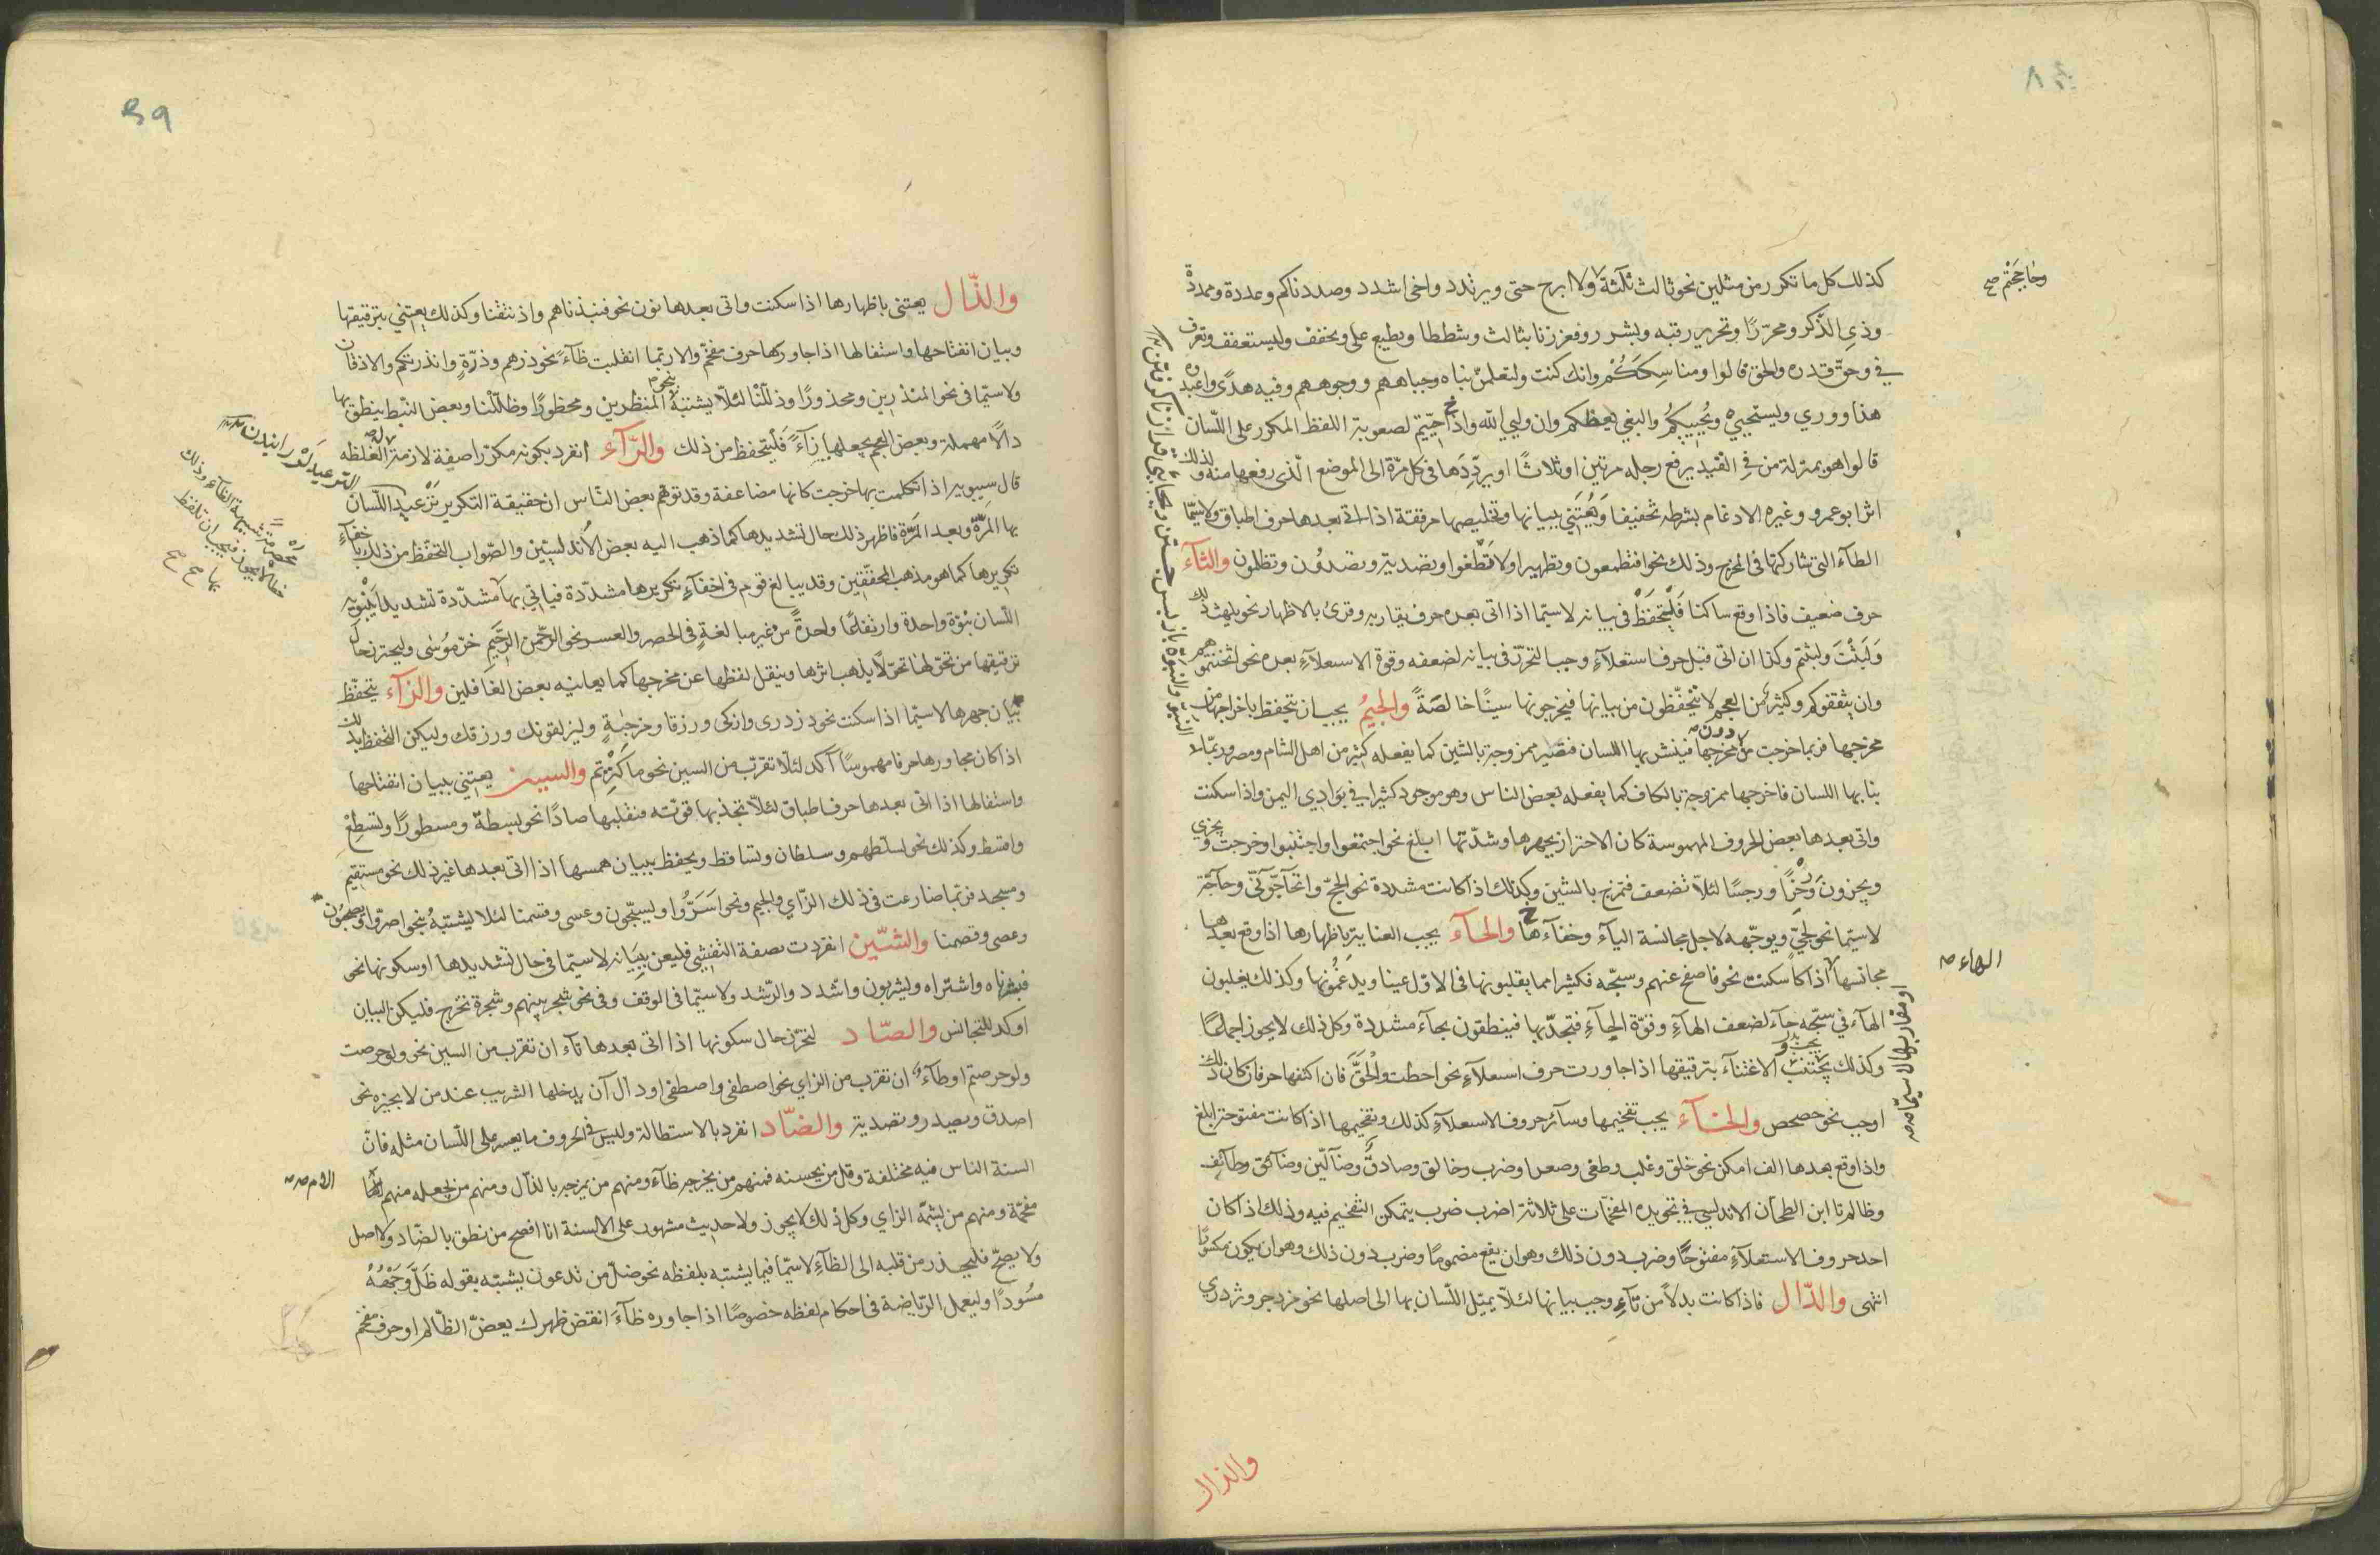 كذلك كل ما تكرر من مثلين نحو ثالث ثلثة ولا ابرح حتى ويرتدد واخى اشدد وصددناكم وعددة وممددة
وذى الذكر ومحررا وتحرير رقبه وبشرر وفعززنا بثالث وشططا ويطبع على ويخفف وليستعفف وتعرف
في وحق قدره والحق قالوا ومناسككم وانك كنت ولتعلمن نباه وجباههم ووجوههم وفيه هدى واعبدوه
هذا ووري ويستحيي ويحييكم والبغي يعظكم وان وليي الله واذا حييتم لصعوبة اللفظ المكرر على اللسان
قالوا هو بمنزلة من في القيد يرفع رجله مرتين او ثلاثا او يرددها في كل مرة الى الموضع الذى رفعها منه ولذلك
اثر ابو عمرو وغيره الادغام بشرطه تخفيفا ويعتنى ببيانها وتخليصها مرققة اذا اتى بعدها حرف اطباق ولا سيما
الطاء التى شاركتها فى المخرج وذلك نحو افتطمعون وتطهيرا ولا تطغوا وتصدية وتصدون وتظلمون والثاء
حرف ضعيف فاذا وقع ساكنا فليتحفظ فى بيانه لا سيما اذا اتى بعده حرف يقاربه وقرئ بالاظهار نحو يلهث ذلك
ولبثت ولبثتم وكذا ان اتى قبل حرف استعلاء وجب التحرز فى بيانه لضعفه وقوة الاستعلاء بعده نحو اثخنتموهم
وان يثقفوكم وكثير من العجم لا يتحفظون من بيانها فيخرجونها سينا خالصة والجيم يجب ان يتحفظ باخراجها من
مخرجها فربما خرجت من دون مخرجها فينتشر بها اللسان فتصير ممزوجة بالشين كما يفعله كثير من اهل الشام ومصر وربما
نبا بها اللسان فاخرجها ممزوجة بالكاف كما يفعله بعض الناس وهو موجود كثيرا فى بوادى اليمن واذا سكنت
واتى بعدها بعض الحروف المهموسة كان الاحتراز بجهرها وشدتها ابلغ نحو اجتمعوا واجتنبوا وخرجت وتجزي
ويجزون ورجزا ورجسا لئلا تضعف فتمزج بالشين وكذلك اذا كانت مشددة نحو الحج واتحاجوني وحاجه
لا سيما نحو لجي ويوجهه لاجل مجانسة الياء وخفاء ها والحاء يجب العناية باظهارها اذا وقع بعدها
مجانسها اذا كا سكنت نحو فاصفح عنهم وسبحه فكثيرا مما يقلبونها فى الاول عينا ويدغمونها وكذلك يقلبون
الهاء في سبحه حاء لضعف الهاء وقوة الحاء فتجذبها فينطقون بحاء مشددة وكل ذلك لا يجوز اجماعا
وكذلك يجب الاعتناء بترقيقها اذا جاورت حرف استعلاء نحو احطت والحق فان اكتنفها حرفان كان ذلك
اوجب نحو حصحص والخاء يجب تفخيمها وسائر حروف الاستعلاء كذلك وتفخيمها اذا كانت مفتوحة ابلغ
واذا وقع بعدها الف امكن نحو خلق وغلب وطغى وصعدا وضرب وخالق وصادق وضالين وضائق وطائف
وظالم قا ابن الطحان الاندلسي في تجويده المفخمات على ثلاثة اضرب ضرب يتمكن التفخيم فيه وذلك اذا كان
احد حروف الاستعلاء مفتوحا وضرب دون ذلك وهو ان يقع مضموما وضرب دون ذلك وهو ان يكون مكسورا
انتهى والدال فاذا كانت بدلا من تاء وجب بيانها لئلا يميل اللسان بها الى اصلها نحو مزدجر وتزدري
والذال
وحاججتم صح
الهاء
او مقاربها لا سيما
والذال يعتنى باظهارها اذا سكنت واتى بعدها نون نحو فنبذناهم واذ نتقنا وكذلك يعتني بترقيقها
وبيان انفتاحها واستفالها اذا جاورها حرف مفخم والا ربما انقلبت ظاء نحو ذرهم وذرة وانذرتكم والاذقان
ولا سيما فى نحو المنذرين ومحذورا وذللنا لئلا يشتبه بنحو المنظرين ومحظورا وظللنا وبعض النبط ينطق بها
دالا مهملة وبعض العجم يجعلها زاء فليتحفظ من ذلك والراء انفرد بكونه مكررا صفة لازمة له لغلظه
قال سيبويه اذا تكلمت بها خرجت كانها مضاعفة وقد توهم بعض الناس ان حقيقة التكرير ترعيد اللسان
بها المرة وبعد المرة فاظهر ذلك حال تشديدها كما ذهب اليه بعض الاندلسيين والصواب التحفظ من ذلك باخفاء
تكريرها كما هو مذهب المحققين وقد يبالغ قوم فى اخفاء تكريرها مشددة فياتى بها مشددة تشديدا ينبو به
اللسان نبوة واحدة وارتفاعا واحدا من غير مبالغة في الحصر والعسر نحو الرحمن الرحيم خر موسى وليحترز حال
ترقيقها من نحولها نحولا يذهب اثرها وينقل لفظها عن مخرجها كما يعانيه بعض الغافلين والزاء يتحفظ
بيان جهرها لا سيما اذا سكنت نحو تزدرى وازكى ورزقا ومزجية وليزلقونك ورزقك وليكن التحفظ بذلك
اذا كان مجاورها حرفا مهموسا آكد لئلا تقرب من السين نحو ما كنزتم والسين يعتني ببيان انفتاحها
واستفالها اذا اتى بعدها حرف اطباق لئلا تجذبها قوته فتقلبها صادا نحو بسطة ومسطورا وتسطع
واقسط وكذلك نحو لسلطهم وسلطان وتساقط ويحفظ ببيان همسها اذا اتى بعدها غير ذلك نحو مستقيم
ومسجد فربما ضارعت فى ذلك الزاي والجيم ونحو اسروا ويسبحون وعسى وقسمنا لئلا يشتبه بنحو اصروا ويصحبون
وعصى وقصمنا والشين انفردت بصفة التفشي فليعن ببيانه لا سيما فى حال تشديدها او سكونها نحو
فبشرناه واشتراه ويشربون واشدد والرشد ولا سيما فى الوقف وفى نحو شجر بينهم وشجرة تخرج فليكن البيان
اوكد للتجانس والصاد لتحترز حال سكونها اذا اتى بعدها تاء ان تقرب من السين نحو ولو حرصت
ولو حرصتم او طاء ان تقرب من الزاي نحو اصطفى واصطفى او دال ان يدخلها التشريب عند من لا يجيزه نحو
اصدق ويصدر وتصدية والضاد انفرد بالاستطالة وليس فى الحروف ما يعسر على اللسان مثله فان
السنة الناس فيه مختلفة وقل من يحسنه فمنهم من يخرجه ظاء ومنهم من يمزجه بالذال ومنهم من يجعله
مفخمة ومنهم من يشمه الزاي وكل ذلك لا يجوز والحديث مشهور على الالسنة انا افصح من نطق بالضاد ولا اصل
ولا يصح فليحذر من قلبه الى الظاء لا سيما فيما يشتبه بلفظه نحو ضل من تدعون يشتبه بقوله ظل وجهه
مسودا وليعمل الرياضة فى احكام لفظه خصوصا اذا جاوره ظاء انقض ظهرك يعض الظالم او حرف مفخم